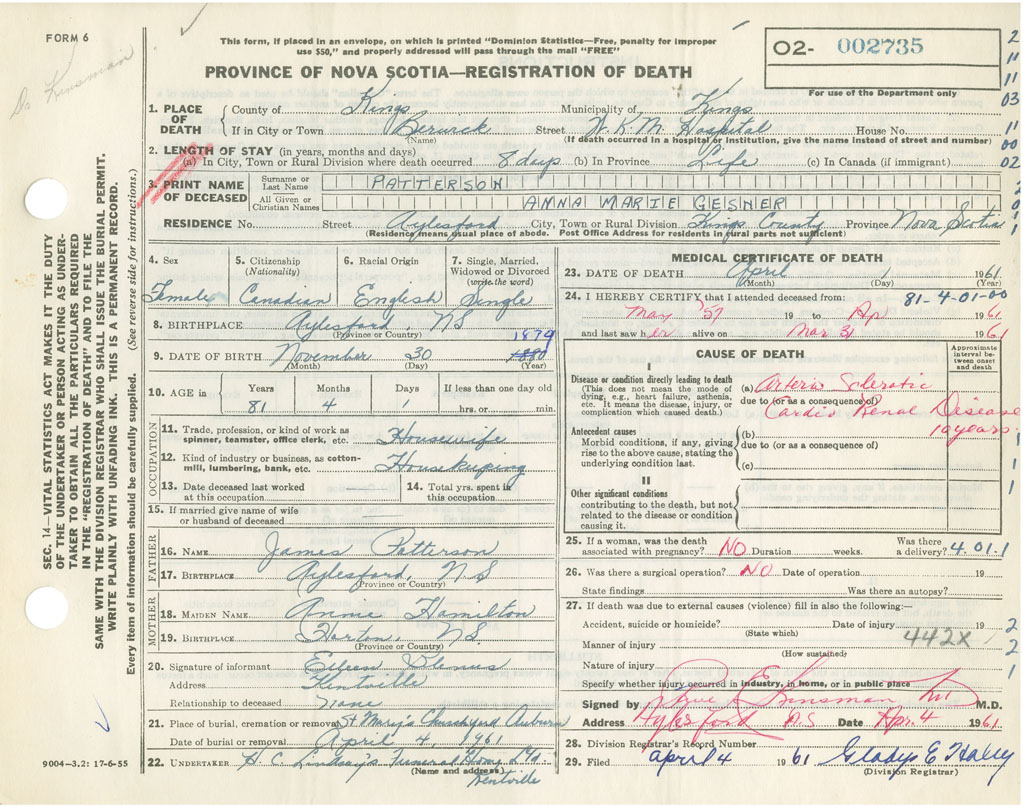 FORM 6
Dr Kinsman
This form, if placed in an envelope, on which is printed "Dominion Statistics—Free, penalty for improper
use $50," and properly addressed will pass through the mail "FREE"
PROVINCE OF NOVA SCOTIA—REGISTRATION OF DEATH
02- 002735
For use of the Department only
2
11
11
03
11
00
02
SEC. 14—VITAL STATISTICS ACT MAKES IT THE DUTY
OF THE UNDERTAKER OR PERSON ACTING AS UNDER-
TAKER TO OBTAIN ALL THE PARTICULARS REQUIRED
IN THE "REGISTRATION OF DEATH" AND TO FILE THE
SAME WITH THE DIVISION REGISTRAR WHO SHALL ISSUE THE BURIAL PERMIT.
WRITE PLAINLY WITH UNFADING INK. THIS IS A PERMANENT RECORD.
Every item of information should be carefully supplied. (See reverse side for instructions.)
1. PLACE OF DEATH
County of Kings Municipality of Kings
If in City or Town Berwick Street W. K. M. Hospital House No.
(Name) (If death occurred in a hospital or institution, give the name instead of street and number)
2. LENGTH OF STAY (in years, months and days)
(a) In City, Town or Rural Division where death occurred 8 days (b) In Province Life (c) In Canada (if immigrant)
3. PRINT NAME OF DECEASED
Surname or Last Name PATTERSON
All Given or Christian Names ANNA MARIE GESNER
RESIDENCE No. Street Aylesford City, Town or Rural Division Kings County Province Nova Scotia
(Residence means usual place of abode. Post Office Address for residents in rural parts not sufficient)
4. Sex
Female
5. Citizenship
(Nationality)
Canadian
6. Racial Origin
English
7. Single, Married,
Widowed or Divorced
(write the word)
Single
8. BIRTHPLACE Aylesford, NS
(Province or Country)
1879
9. DATE OF BIRTH November 30 1880
(Month) (Day) (Year)
10. AGE in
Years Months Days If less than one day old
81 4 1 hrs. or min.
OCCUPATION
11. Trade, profession, or kind of work as
spinner, teamster, office clerk, etc. Housewife
12. Kind of industry or business, as cotton-
mill, lumbering, bank, etc. Housekeeping
13. Date deceased last worked
at this occupation
14. Total yrs. spent in
this occupation
15. If married give name of wife
or husband of deceased
FATHER
16. NAME James Patterson
17. BIRTHPLACE Aylesford, NS
(Province or Country)
MOTHER
18. MAIDEN NAME Annie Hamilton
19. BIRTHPLACE Horton, NS
(Province or Country)
20. Signature of informant Eileen
Address Kentville
Relationship to deceased None
21. Place of burial, cremation or removal St Mary's Churchyard Auburn
Date of burial or removal April 4, 1961
22. UNDERTAKER H. C. Lindsay's Funeral Home Ltd.
(Name and address) Kentville
9004—3.2: 17-6-55
MEDICAL CERTIFICATE OF DEATH
23. DATE OF DEATH April 1 1961
(Month) (Day) (Year)
24. I HEREBY CERTIFY that I attended deceased from: 81-4-01-00
May '57 19 to Ap 1961
and last saw her alive on Mar 31 1961
CAUSE OF DEATH
Approximate
interval be-
tween onset
and death
I
Disease or condition directly leading to death
(This does not mean the mode of
dying, e.g., heart failure, asthenia,
etc. It means the disease, injury, or
complication which caused death.)
(a) Arterio Sclerotic
due to (or as a consequence of)
Cardio Renal Disease
10 years.
Antecedent causes
Morbid conditions, if any, giving
rise to the above cause, stating the
underlying condition last.
(b)
due to (or as a consequence of)
(c)
II
Other significant conditions
contributing to the death, but not
related to the disease or condition
causing it.
25. If a woman, was the death
associated with pregnancy? NO Duration weeks. Was there
a delivery? 4.01.1
26. Was there a surgical operation? NO Date of operation 19
State findings Was there an autopsy?
27. If death was due to external causes (violence) fill in also the following:—
Accident, suicide or homicide? Date of injury 19
(State which)
442X
Manner of injury
(How sustained)
Nature of injury
Specify whether injury occurred in industry, in home, or in public place
Signed by Kinsman M.D.
Address Aylesford NS Date Apr. 4 1961
28. Division Registrar's Record Number
29. Filed April 4 1961 Gladys E
(Division Registrar)